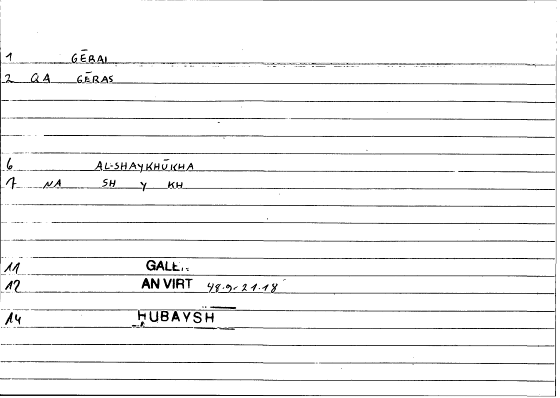 1 GĒRAI
2 QA GĒRAS
6 AL-SHAYKHŪKHA
7 NA SH Y KH
11 GALE..
12 AN VIRT 48.9-21.18
14 ḤUBAYSH